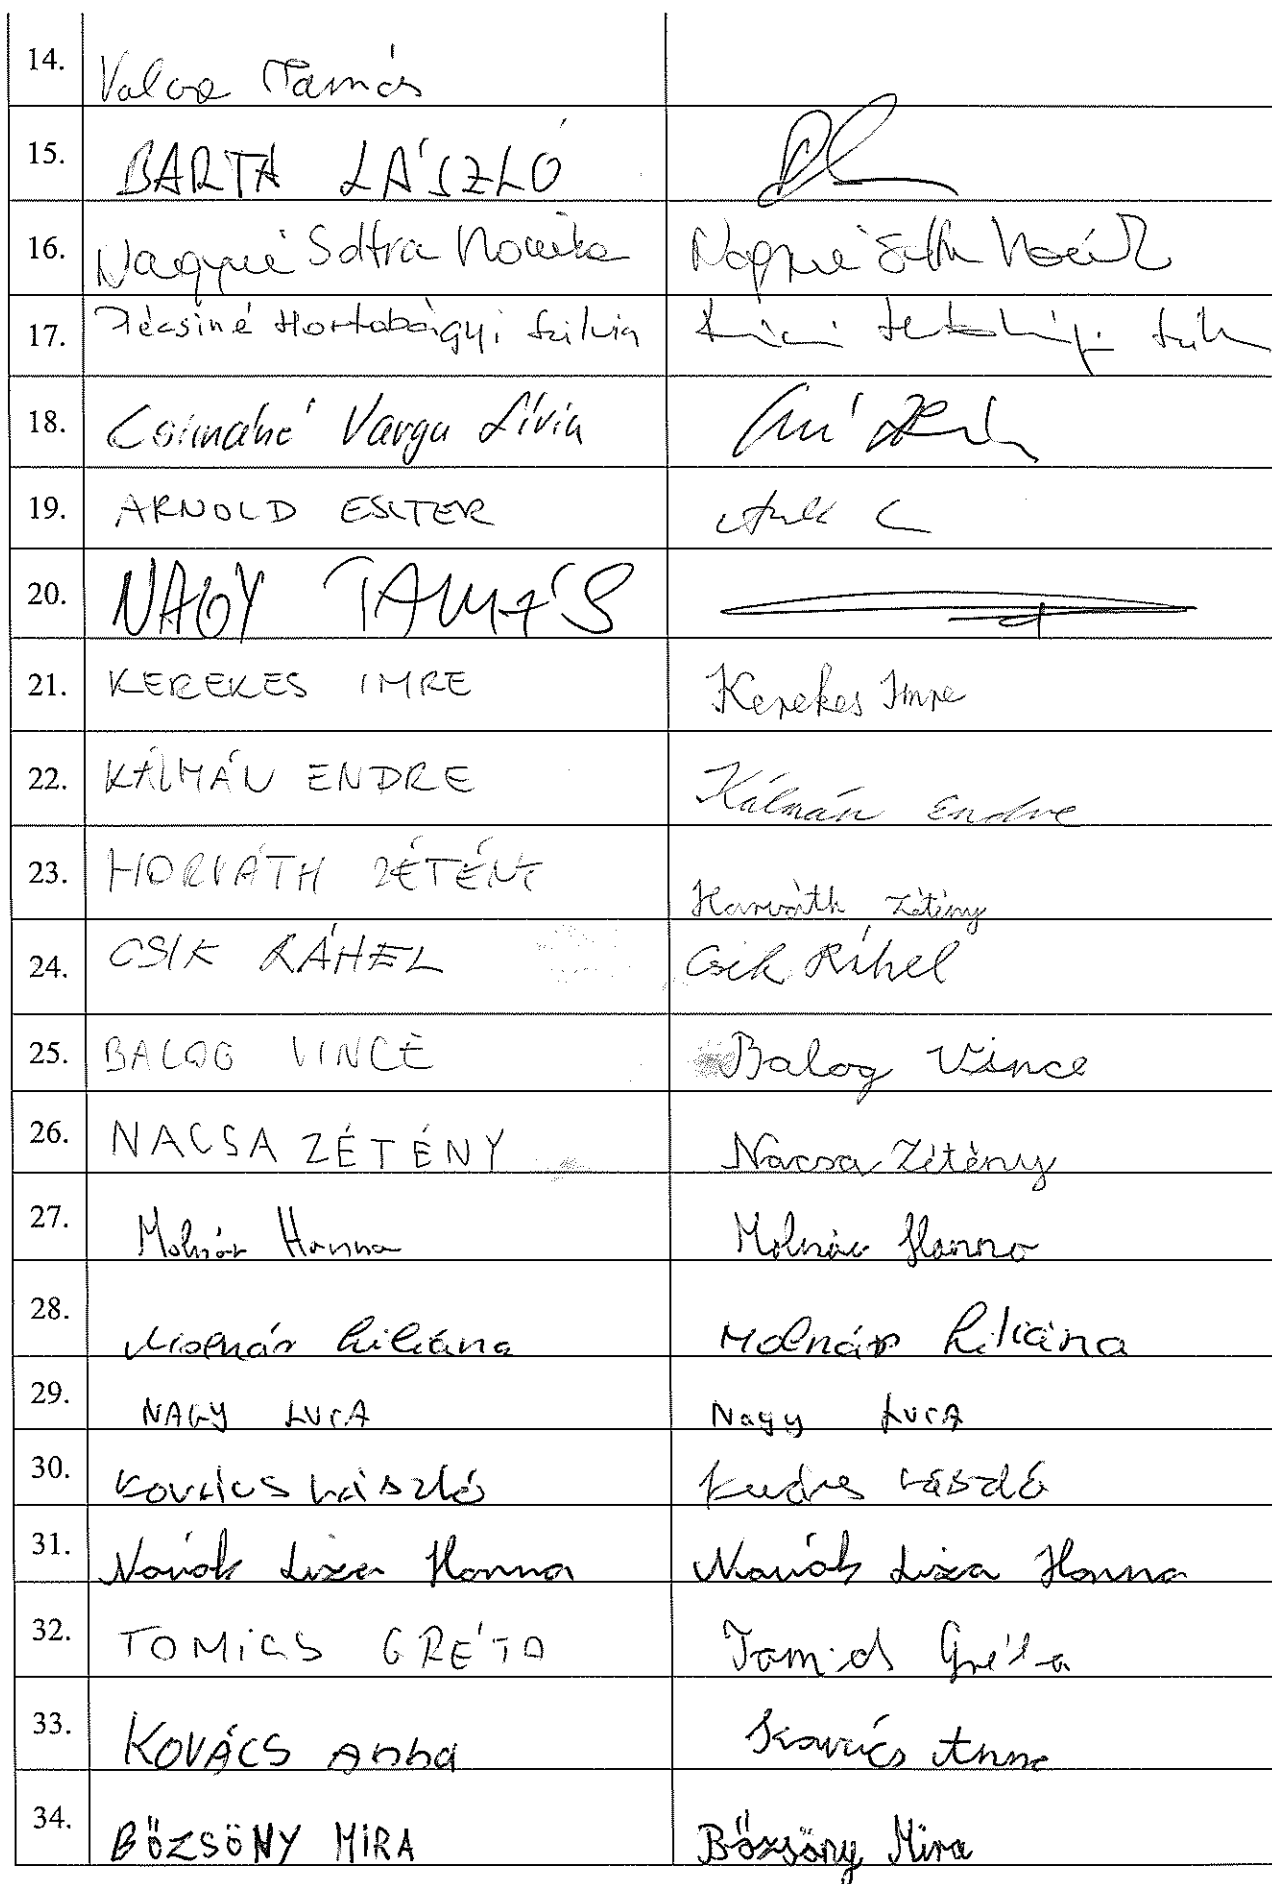 14. Tamás
15. BARTA LÁSZLÓ
16. Nagyné Soltra Monika Nagyné
17. Pécsiné Hortobágyi Szilvia
18. Varga Lívia
19. ARNOLD ESZTER
20. NAGY TAMÁS
21. KEREKES IMRE Kerekes Imre
22. KÁLMÁN ENDRE Kálmán Endre
23. HORVÁTH ZÉTÉNY Horváth Zétény
24. CSIK RÁHEL Csik Ráhel
25. BALOG VINCE Balog Vince
26. NACSA ZÉTÉNY Nacsa Zétény
27. Molnár Hanna Molnár Hanna
28. Molnár Liliána Molnár Liliána
29. NAGY LUCA Nagy LUCA
30. Kovács László Kovács László
31. Novák Liza Hanna Novák Liza Hanna
32. TOMICS GRÉTA Tomics Gréta
33. KOVÁCS Anna Kovács Anna
34. BŐZSÖNY MIRA Bőzsöny Mira